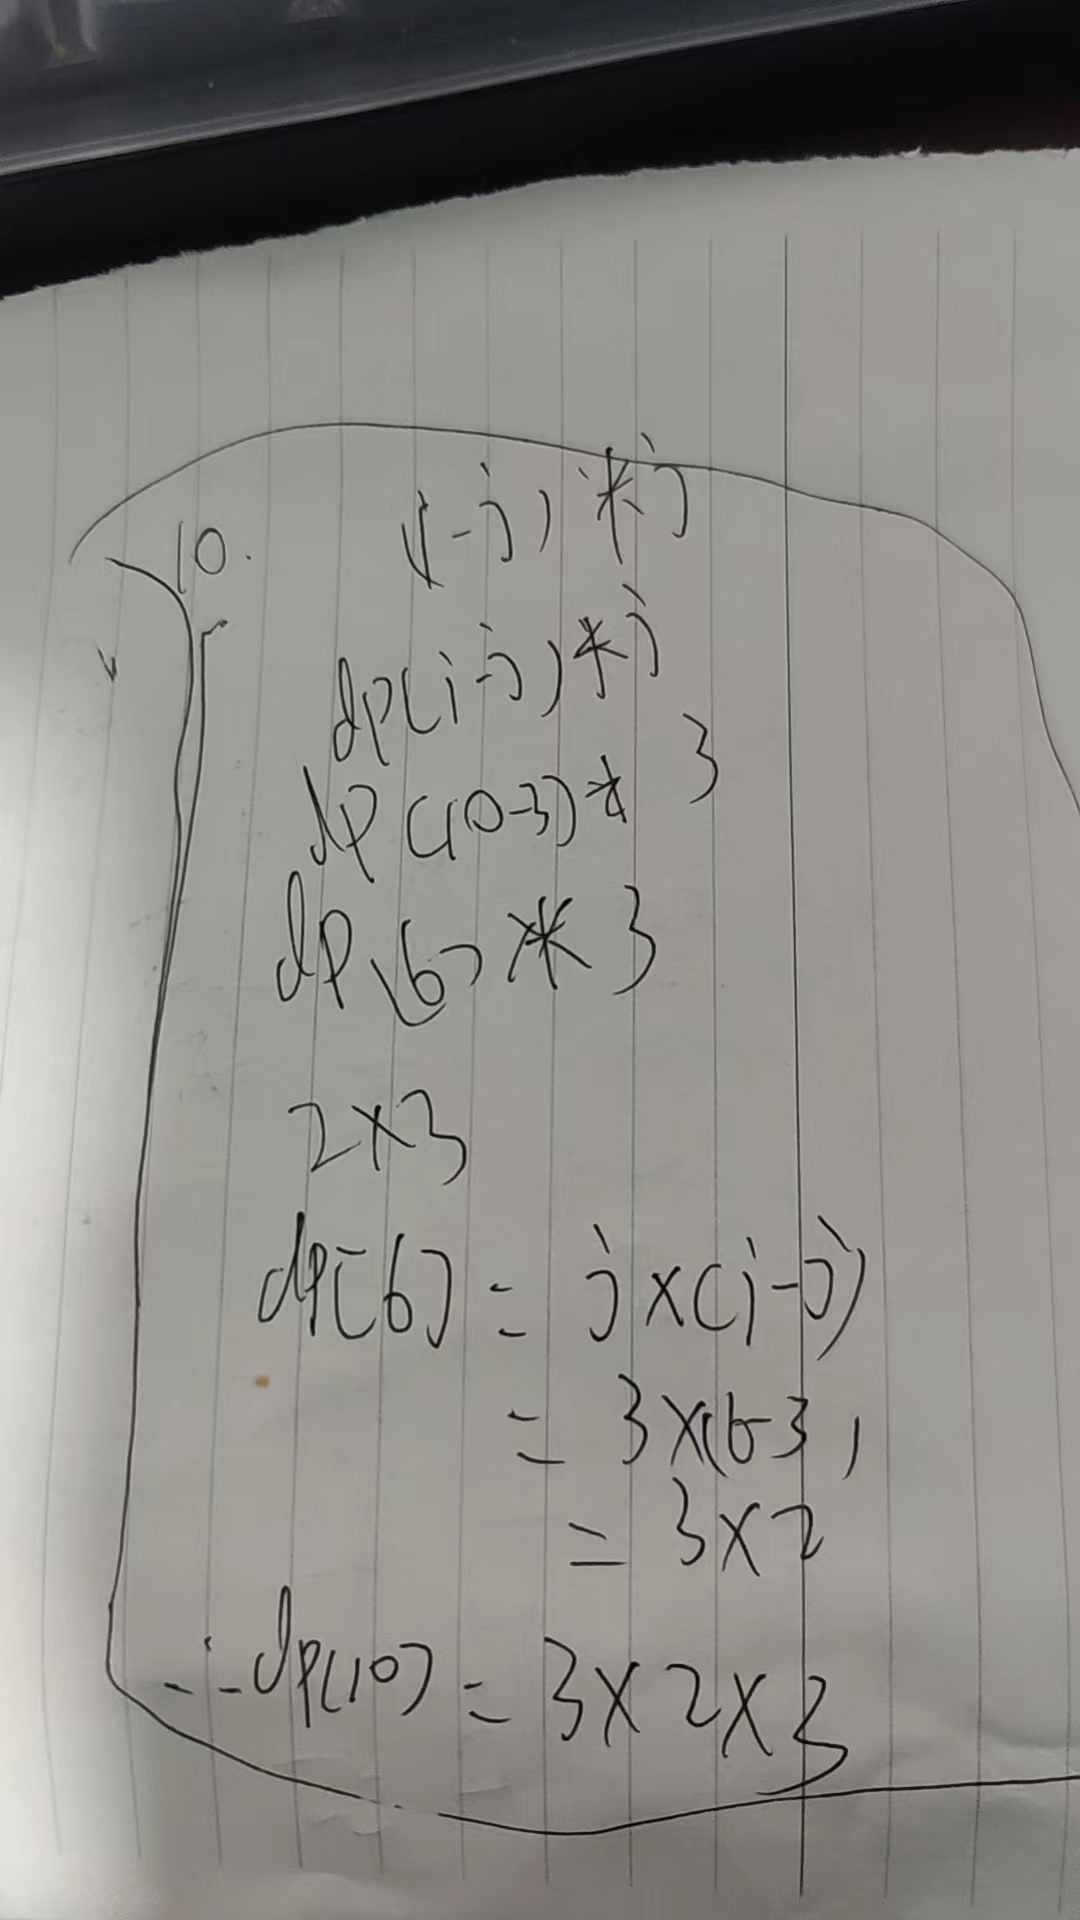 10.
(i-j)*j
dp(i-j)*j
dp(10-3)* 3
dp(6)* 3
2×3
dp[6] = j×(i-j)
= 3×(6-3)
= 3×2
∴dp(10) = 3×2×3